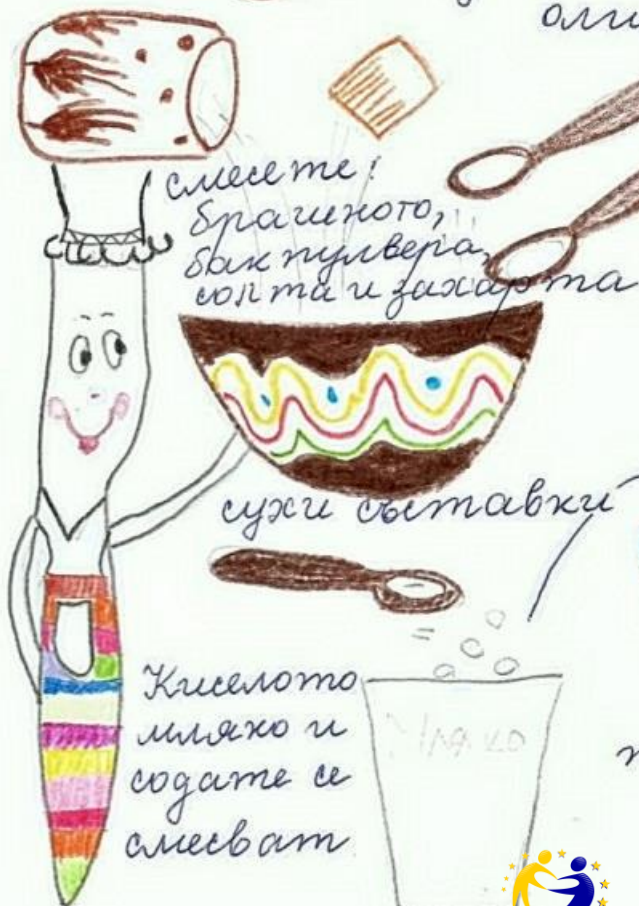 смесете:
брашното,
бакпулвера,
солта и захарта
сухи съставки
Киселото
мляко и
содате се
смесват
Мляко